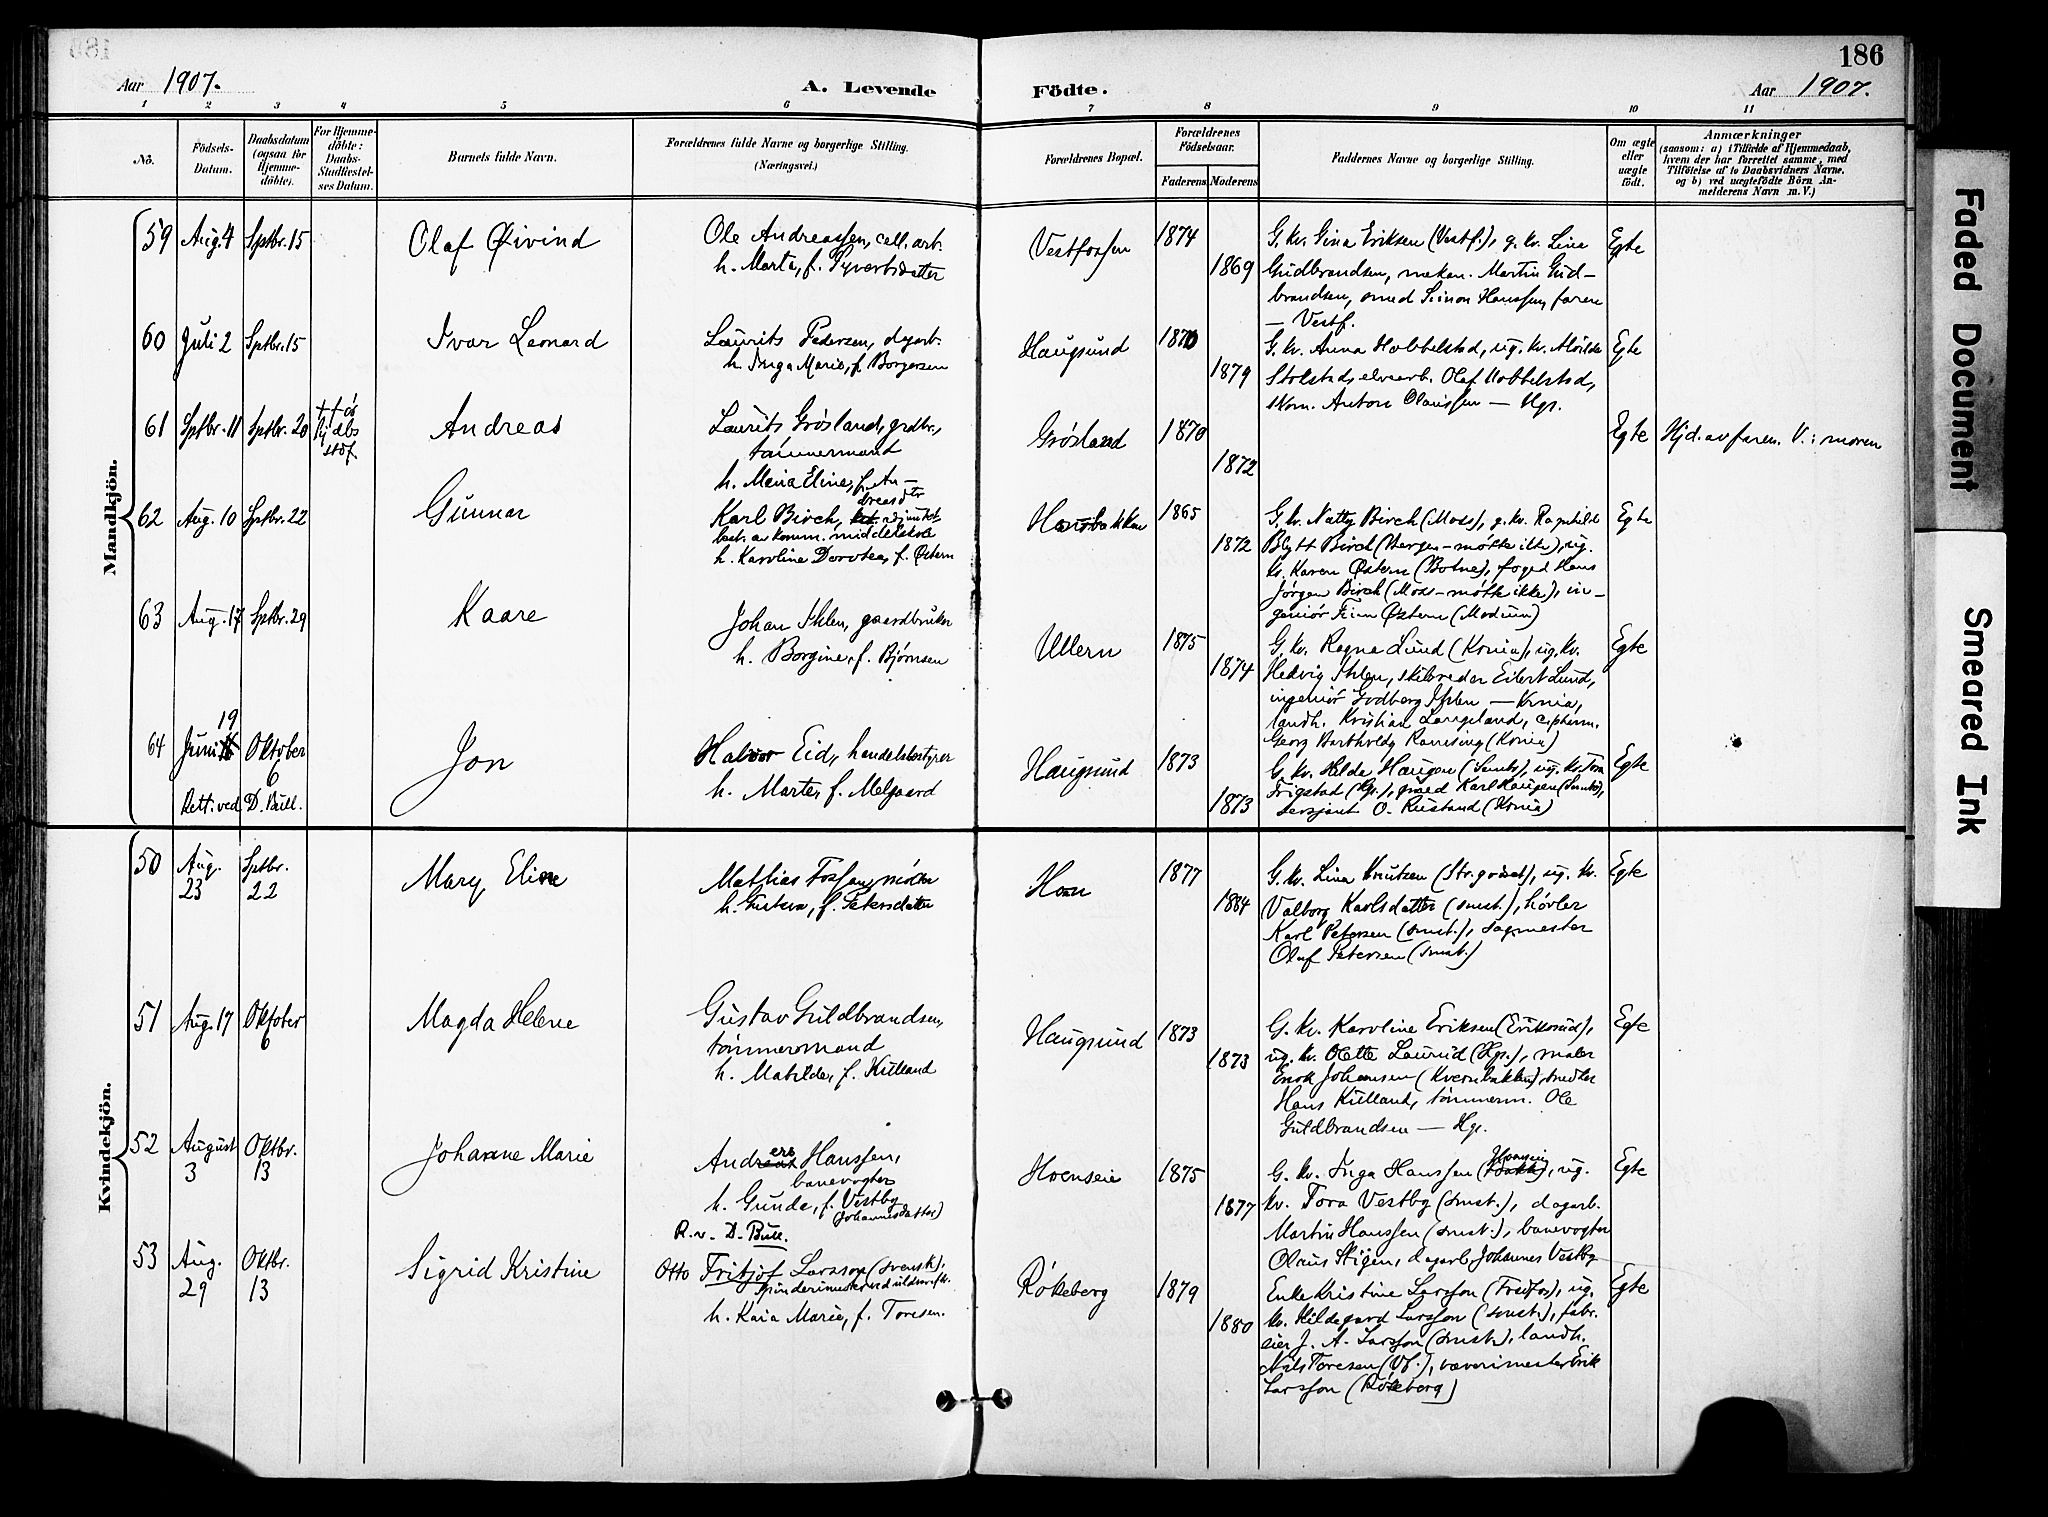 186
Aar 1907.
A. Levende Födte.
Aar 1907.
1 2 3 4 5 6 7 8 9 10 11
No.
Födsels-Datum.
Daabsdatum (ogsaa for Hjemme-döbte).
For Hjemme-döbte: Daabs-Stadfæstel-ses Datum.
Barnets fulde Navn.
Forældrenes fulde Navne og borgerlige Stilling.
(Næringsvei.)
Forældrenes Bopæl.
Forældrenes Födselsaar.
Faderens. Moderens.
Faddernes Navne og borgerlige Stilling.
Om ægte eller uægte födt.
Anmærkninger
(saasom: a) i Tilfælde af Hjemmedaab,
hvem der har forrettet samme, med
Tilföielse af to Daabsvidners Navne.
og b) ved uægtefödte Börn An-
melderens Navn m. V.)
Mandkjön.
59 Aug. 4 Sptbr. 15 Olaf Øivind
Ole Andreassen, cell. arb.
h. Marta, f. Syvertsdatter
Vestfossen 1874 1869
G. kv. Gina Eriksen (Vestf.), g. kv. Lina
Gudbrandsen, mekan. Martin Gud-
brandsen, smed Simon Hanssen, faren
— Vestf.
Egte
60 Juli 2 Sptbr. 15 Ivar Leonard
Laurits Pedersen, dagarb.
h. Inga Marie, f. Borgersen
Haugsund 1870 1879
G. kv. Anna Hobbelstad, ug. kv. Alvilde
Stolstad, elvearb. Olaf Hobbelstad,
skom. Anton Olaussen — Hgs.
Egte
61 Sptbr. 11 Sptbr. 20
Andreas
Laurits Grøsland, grdbr.,
tømmermand
h. Maria Eline, f. An-
dreasdtr
Grøsland 1870 1872
Egte Hjd. av faren. V.: moren
62 Aug. 10 Sptbr. 22 Gunnar
Karl Birch, adjunkt
best. av komm. middelskole
h. Karoline Dorotea, f. Østern
1865 1872
G. kv. Natty Birch (Moss), g. kv. Ragnhild
Blytt Birch (Bergen – møtte ikke), ug.
kv. Karen Østern (Botne), foged Hans
Jørgen Birch (Moss – møtte ikke), in-
geniør Finn Østern (Modum)
Egte
63 Aug. 17 Sptbr. 29 Kaare
Johan Ihlen, gaardbruker
h. Borgine, f. Bjørnsen
Ullern 1875 1874
G. kv. Ragna Lund (Krnia), ug. kv.
Hedvig Ihlen, skibsreder Eilert Lund,
ingeniør Godberg Ihlen — Krnia,
landh. Kristian Langeland,
Georg Bartholdy (Krnia)
Egte
64 Juni 19 Oktober 6 Jon
Rett. ved D. Bull.
Halvor Eid, handelsbestyrer
h. Marte, f. Melgaard
Haugsund 1873 1873
G. kv. Hilda Haugen (Smst.), ug. kv. Tora
Frigstad (Hgs.), smed Karl Haugen (Smst.),
sersjant O. Rustand (Krnia)
Egte
Kvindekjön.
50 Aug. 23 Sptbr. 22 Mary Eline
Mathias Fossen,
h. Gustava, f. Petersdatter
Hoen 1877 1884
G. kv. Lina Knutsen (Str.godset), ug. kv.
Valborg Karlsdatter (smst.), høvler
Karl Petersen (smst.), sagmester
Olaf Petersen (smst.)
Egte
51 Aug. 17 Oktober 6 Magda Helene
Gustav Guldbrandsen,
tømmermand
h. Matilde, f. Kulland
Haugsund 1873 1873
G. kv. Karoline Eriksen (Eriksrud),
ug. kv. Olette Laurud (Hgs.), maler
Enok Johansen (Kvernbakken), snedker
Hans Kulland, tømmerm. Ole
Guldbrandsen — Hgs.
Egte
52 August 3 Oktbr. 13 Johanne Marie
Anders Hanssen,
banevogter
h. Gunda, f. Vestby
(Johannesdatter)
R. v. D. Bull.
Hoenseie 1875 1877
G. kv. Inga Hanssen (Hoenseie), ug.
kv. Tora Vestby (smst.), dagarb.
Martin Hanssen (smst.), banevogter
Olaus Stigen, dagarb. Johannes Vestby
Egte
53 Aug. 29 Oktbr. 13 Sigrid Kristine
Otto Fritjof Larsson (svensk),
spinderimester ved uldvarefk.
h. Kaia Marie, f. Toresen.
Røkeberg 1879 1880
Enke Kristine Larsson (Fredfos), ug.
kv. Hildegard Larsson (smst.), fabr.
eier J. A. Larsson (smst.), landh.
Nils Toresen (Vf.), vævermester Erik
Larsson (Røkeberg)
Egte
Faded Document
Smeared Ink